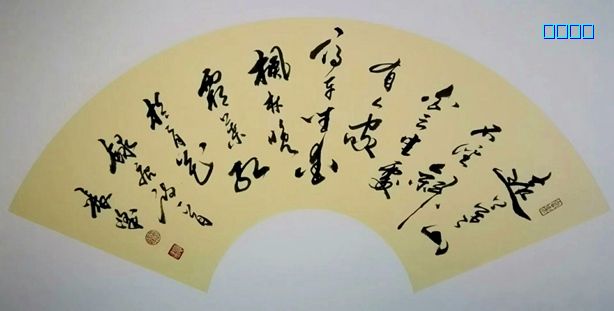 远上寒山
石径斜
白云生处
有人家
停车坐爱
枫林晚
霜叶红
于二月花